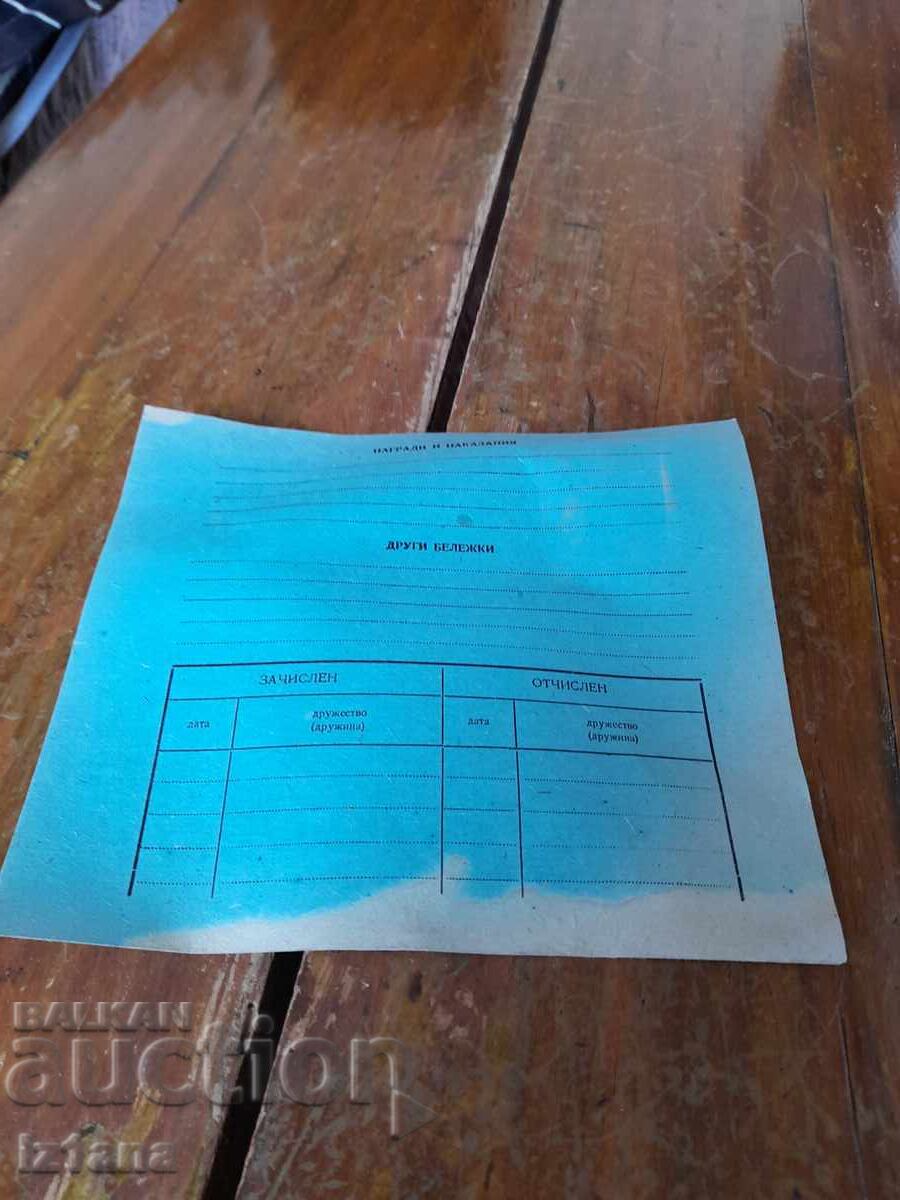 НАГРАДИ И НАКАЗАНИЯ
ДРУГИ БЕЛЕЖКИ
ЗАЧИСЛЕН
ОТЧИСЛЕН
дата
дружество
(дружина)
дата
дружество
(дружина)
BALKAN
auction
iz1ana